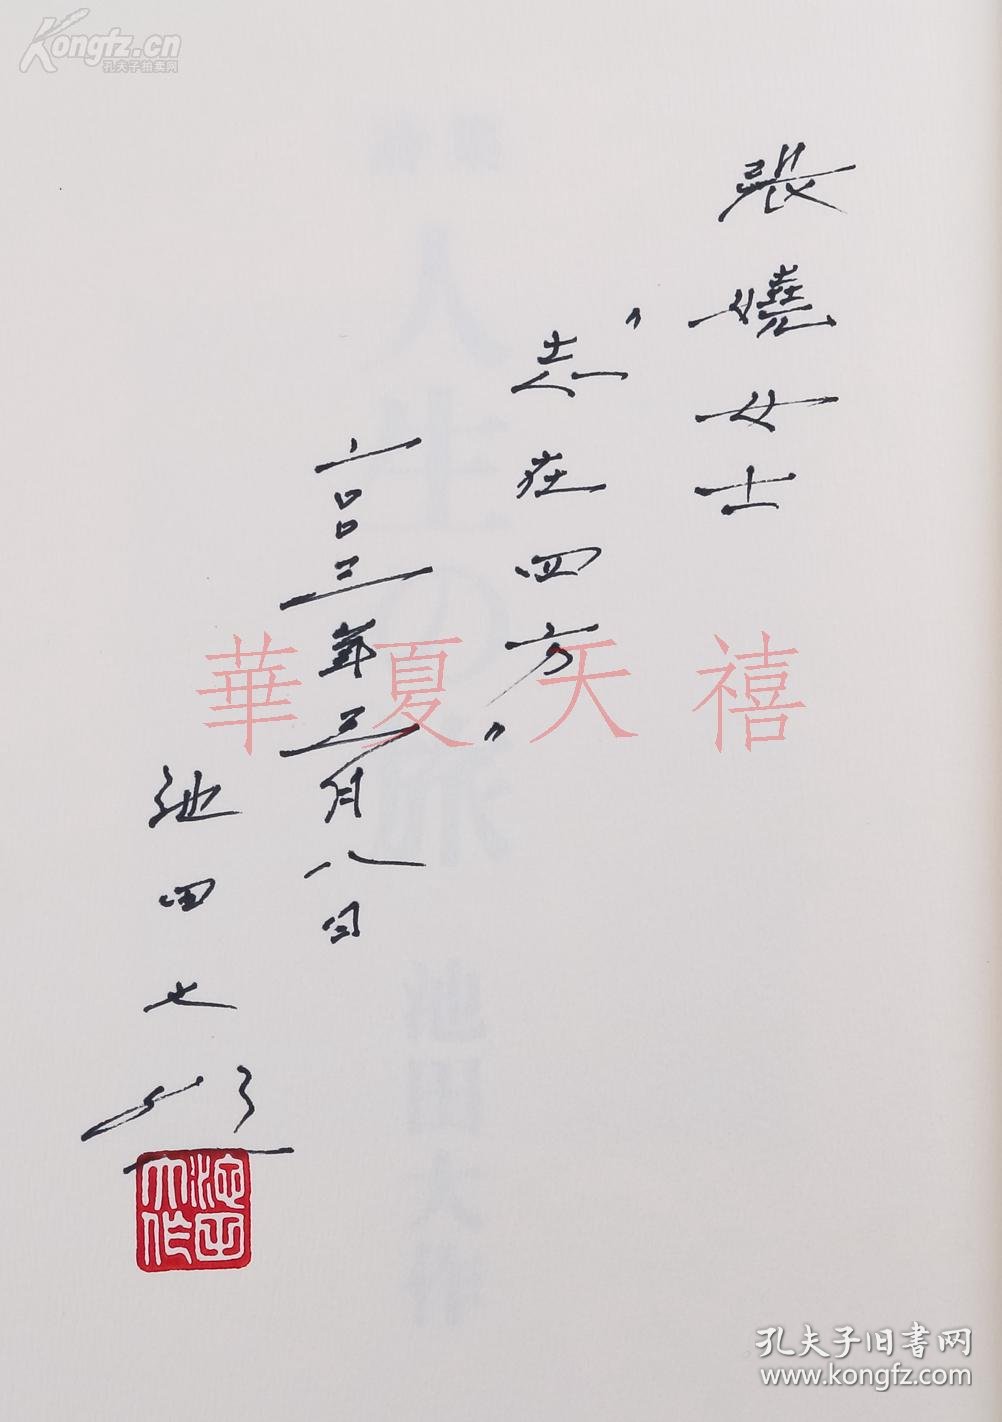 Kongfz.cn
孔夫子拍卖网
張嬈女士
"志在四方"
二〇〇三年三月八日
池田大作
華夏天禧
人生の旅
池田大作
池田大作
孔夫子旧书网
www.kongfz.com